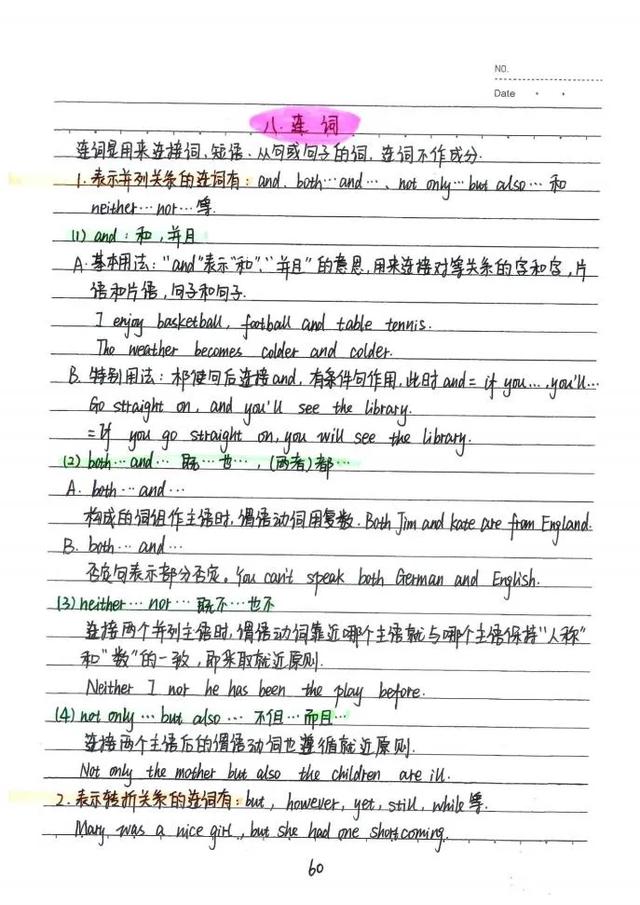 NO.
Date
八.连词
连词是用来连接词、短语、从句或句子的词,连词不作成分.
1.表示并列关系的连词有:and、both…and…、not only…but also…和
neither…nor…等.
(1) and:和,并且
A.基本用法:"and"表示"和"、"并且"的意思,用来连接对等关系的字和字,片
语和片语,句子和句子.
I enjoy basketball, football and table tennis.
The weather becomes colder and colder.
B.特别用法:祈使句后连接and,有条件句作用,此时and= if you…,you'll…
Go straight on, and you'll see the library.
=If you go straight on, you will see the library.
(2) both…and… 既…也…,(两者)都…
A. both…and…
构成的词组作主语时,谓语动词用复数.Both Jim and Kate are from England.
B. both…and…
否定句表示部分否定。You can't speak both German and English.
(3) neither…nor… 既不…也不
连接两个并列主语时,谓语动词靠近哪个主语就与哪个主语保持"人称"
和"数"的一致,即采取就近原则.
Neither I nor he has been the play before.
(4) not only…but also… 不但…而且…
连接两个主语后的谓语动词也遵循就近原则.
Not only the mother but also the children are ill.
2.表示转折关系的连词有:but, however, yet, still, while等.
Mary was a nice girl, but she had one shortcoming.
60